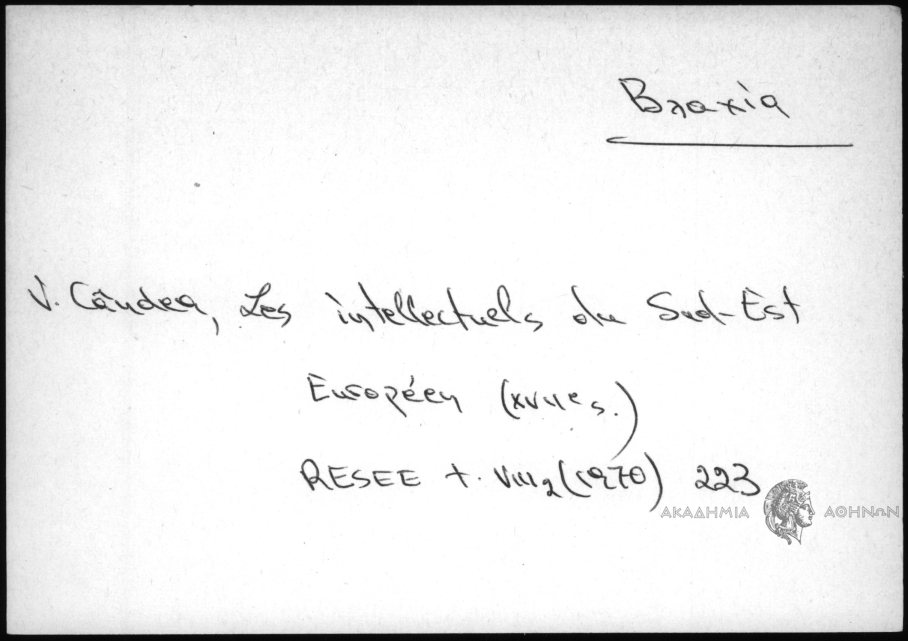 Βλαχία
V. Cândea, Les intellectuels du Sud-Est
Européen (XVIIe s.)
RESEE t. VIII₂ (1970) 223
ΑΚΑΔΗΜΙΑ ΑΘΗΝΩΝ